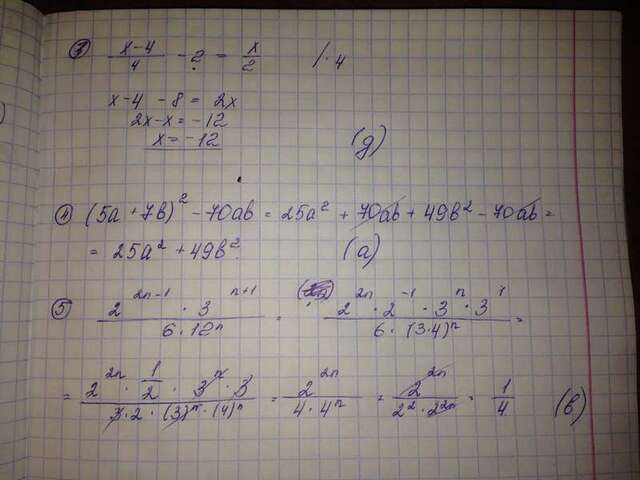 ③ (x-4)/4 - 2 = x/2 /·4
x-4 - 8 = 2x
2x-x = -12
x = -12 (д)
④ (5a + 7b)² - 70ab = 25a² + 70ab + 49b² - 70ab =
= 25a² + 49b² (a)
⑤ (2²ⁿ⁻¹ · 3ⁿ⁺¹)/(6·12ⁿ) = (2²ⁿ · 2⁻¹ · 3ⁿ · 3¹)/(6·(3·4)ⁿ) =
= (2²ⁿ · 1/2 · 3ⁿ · 3)/(3·2·(3)ⁿ·(4)ⁿ) = 2²ⁿ/(4·4ⁿ) = 2²ⁿ/(2²·2²ⁿ) = 1/4 (в)